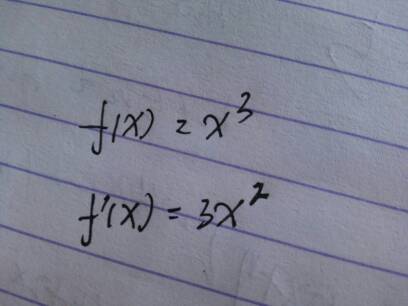 f(x) = x³
f'(x) = 3x²